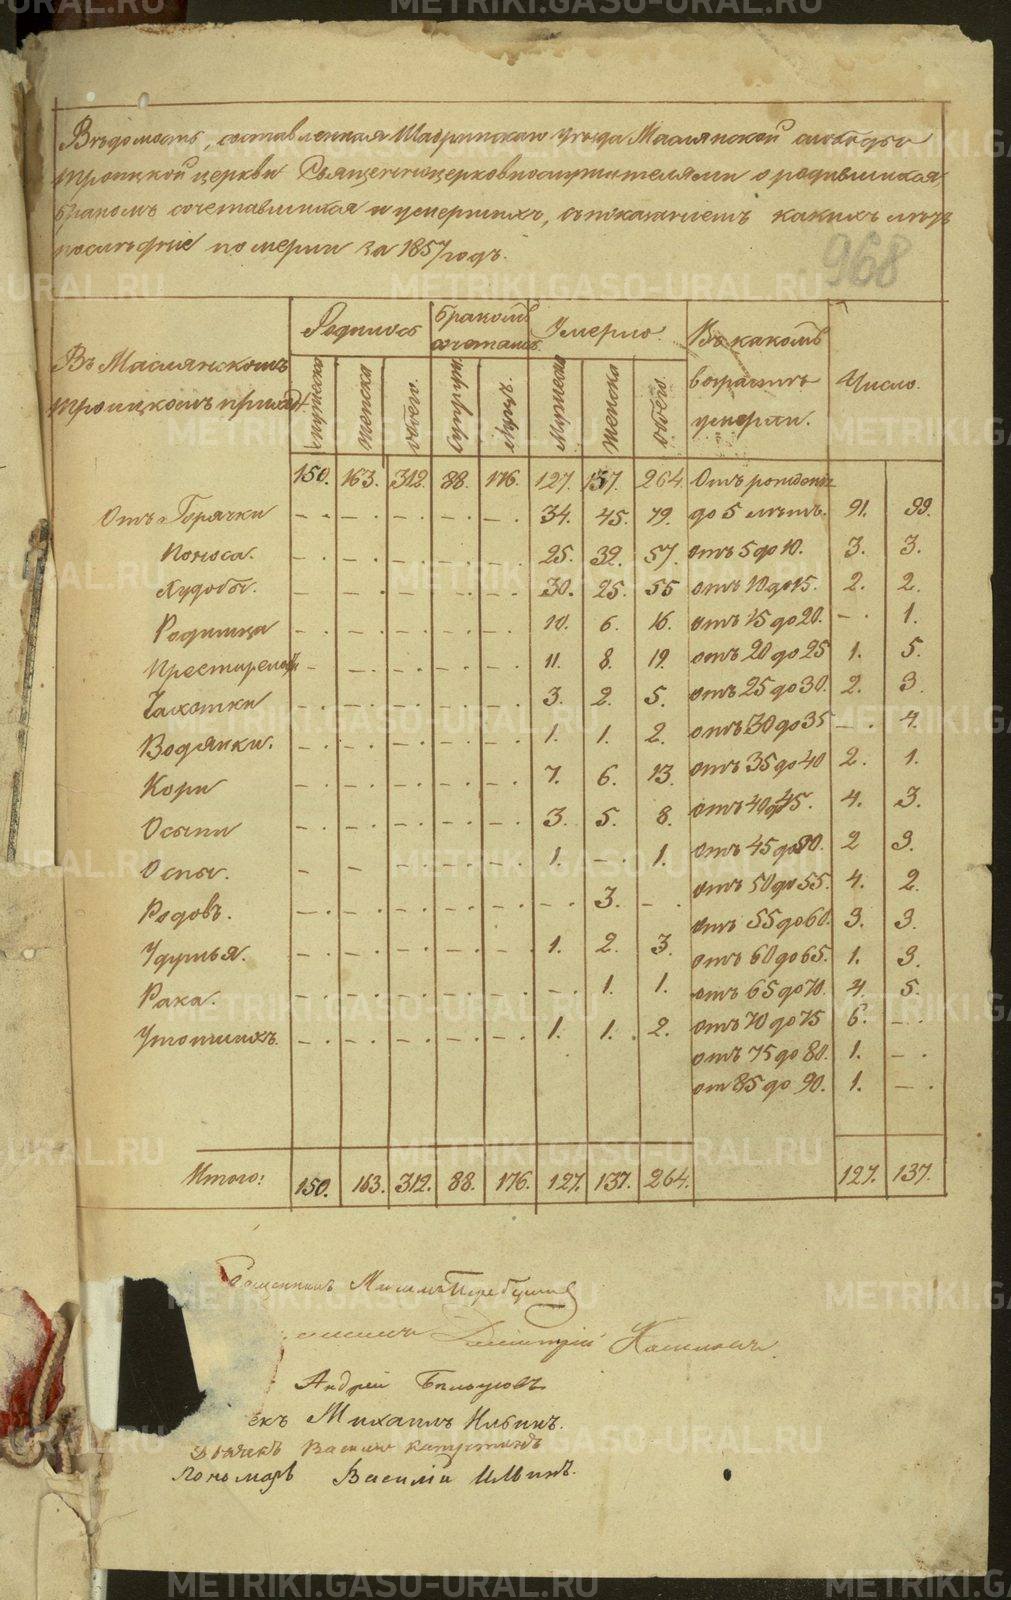 Вѣдомость, составленная Шадринскаго уѣзда Маслянской слободы
Троицкой церкви Священноцерковнослужителями о родившихся,
бракомъ сочетавшихся и умершихъ, съ показаніемъ какихъ лѣтъ
послѣдніе померли за 1857 годъ.
968
Въ Маслянскомъ Троицкомъ приходѣ
Родилось Бракомъ сочеталось Умерло. Въ какомъ возрастѣ умерли. Число.
мужеска женска обоего. супруж. лицъ. мужеска женска обоего.
150. 163. 312. 88. 176. 127. 137. 264. Отъ рожденія
Отъ Горячки - . - . - . - . - . 34. 45. 79. до 5 лѣтъ. 91. 99.
Поноса. - . - . - . - . - . 25. 32. 57. отъ 5 до 10. 3. 3.
Худобы. - . - . - . - . - . 30. 25. 55 отъ 10 до 15. 2. 2.
Родимца - . - . - . - . - . 10. 6. 16. отъ 15 до 20. - . 1.
Престарелости - . - . - . - . - . 11. 8. 19. отъ 20 до 25 1. 5.
Чахотки - . - . - . - . - . 3. 2. 5. отъ 25 до 30. 2. 3.
Водянки. - . - . - . - . - . 1. 1. 2. отъ 30 до 35 - . 4.
Кори - . - . - . - . - . 7. 6. 13. отъ 35 до 40 2. 1.
Осыпи - . - . - . - . - . 3. 5. 8. отъ 40 до 45. 4. 3.
Оспы. - - - . - . - . 1. - . 1. отъ 45 до 50. 2 3.
Родовъ. - . - . - . - . - . - . 3. - . отъ 50 до 55. 4. 2.
Удушья. - . - . - . - . - . 1. 2. 3. отъ 55 до 60. 3. 3.
отъ 60 до 65. 1. 3.
Рака. - . - . - . - . - . - . 1. 1. отъ 65 до 70. 4. 5.
Утопшихъ. - . - . - . - . - . 1. 1. 2. отъ 70 до 75 6. - .
отъ 75 до 80. 1. - .
от 85 до 90. 1. - .
Итого: 150. 163. 312. 88. 176. 127. 137. 264. 127. 137.
Священникъ Михаилъ
Димитрій
Андрей Бѣлоусовъ
екъ Михаилъ Ильинъ.
Дьячекъ Василій
Пономарь Василій Ильинъ.
METRIKI.GASO-URAL.RU